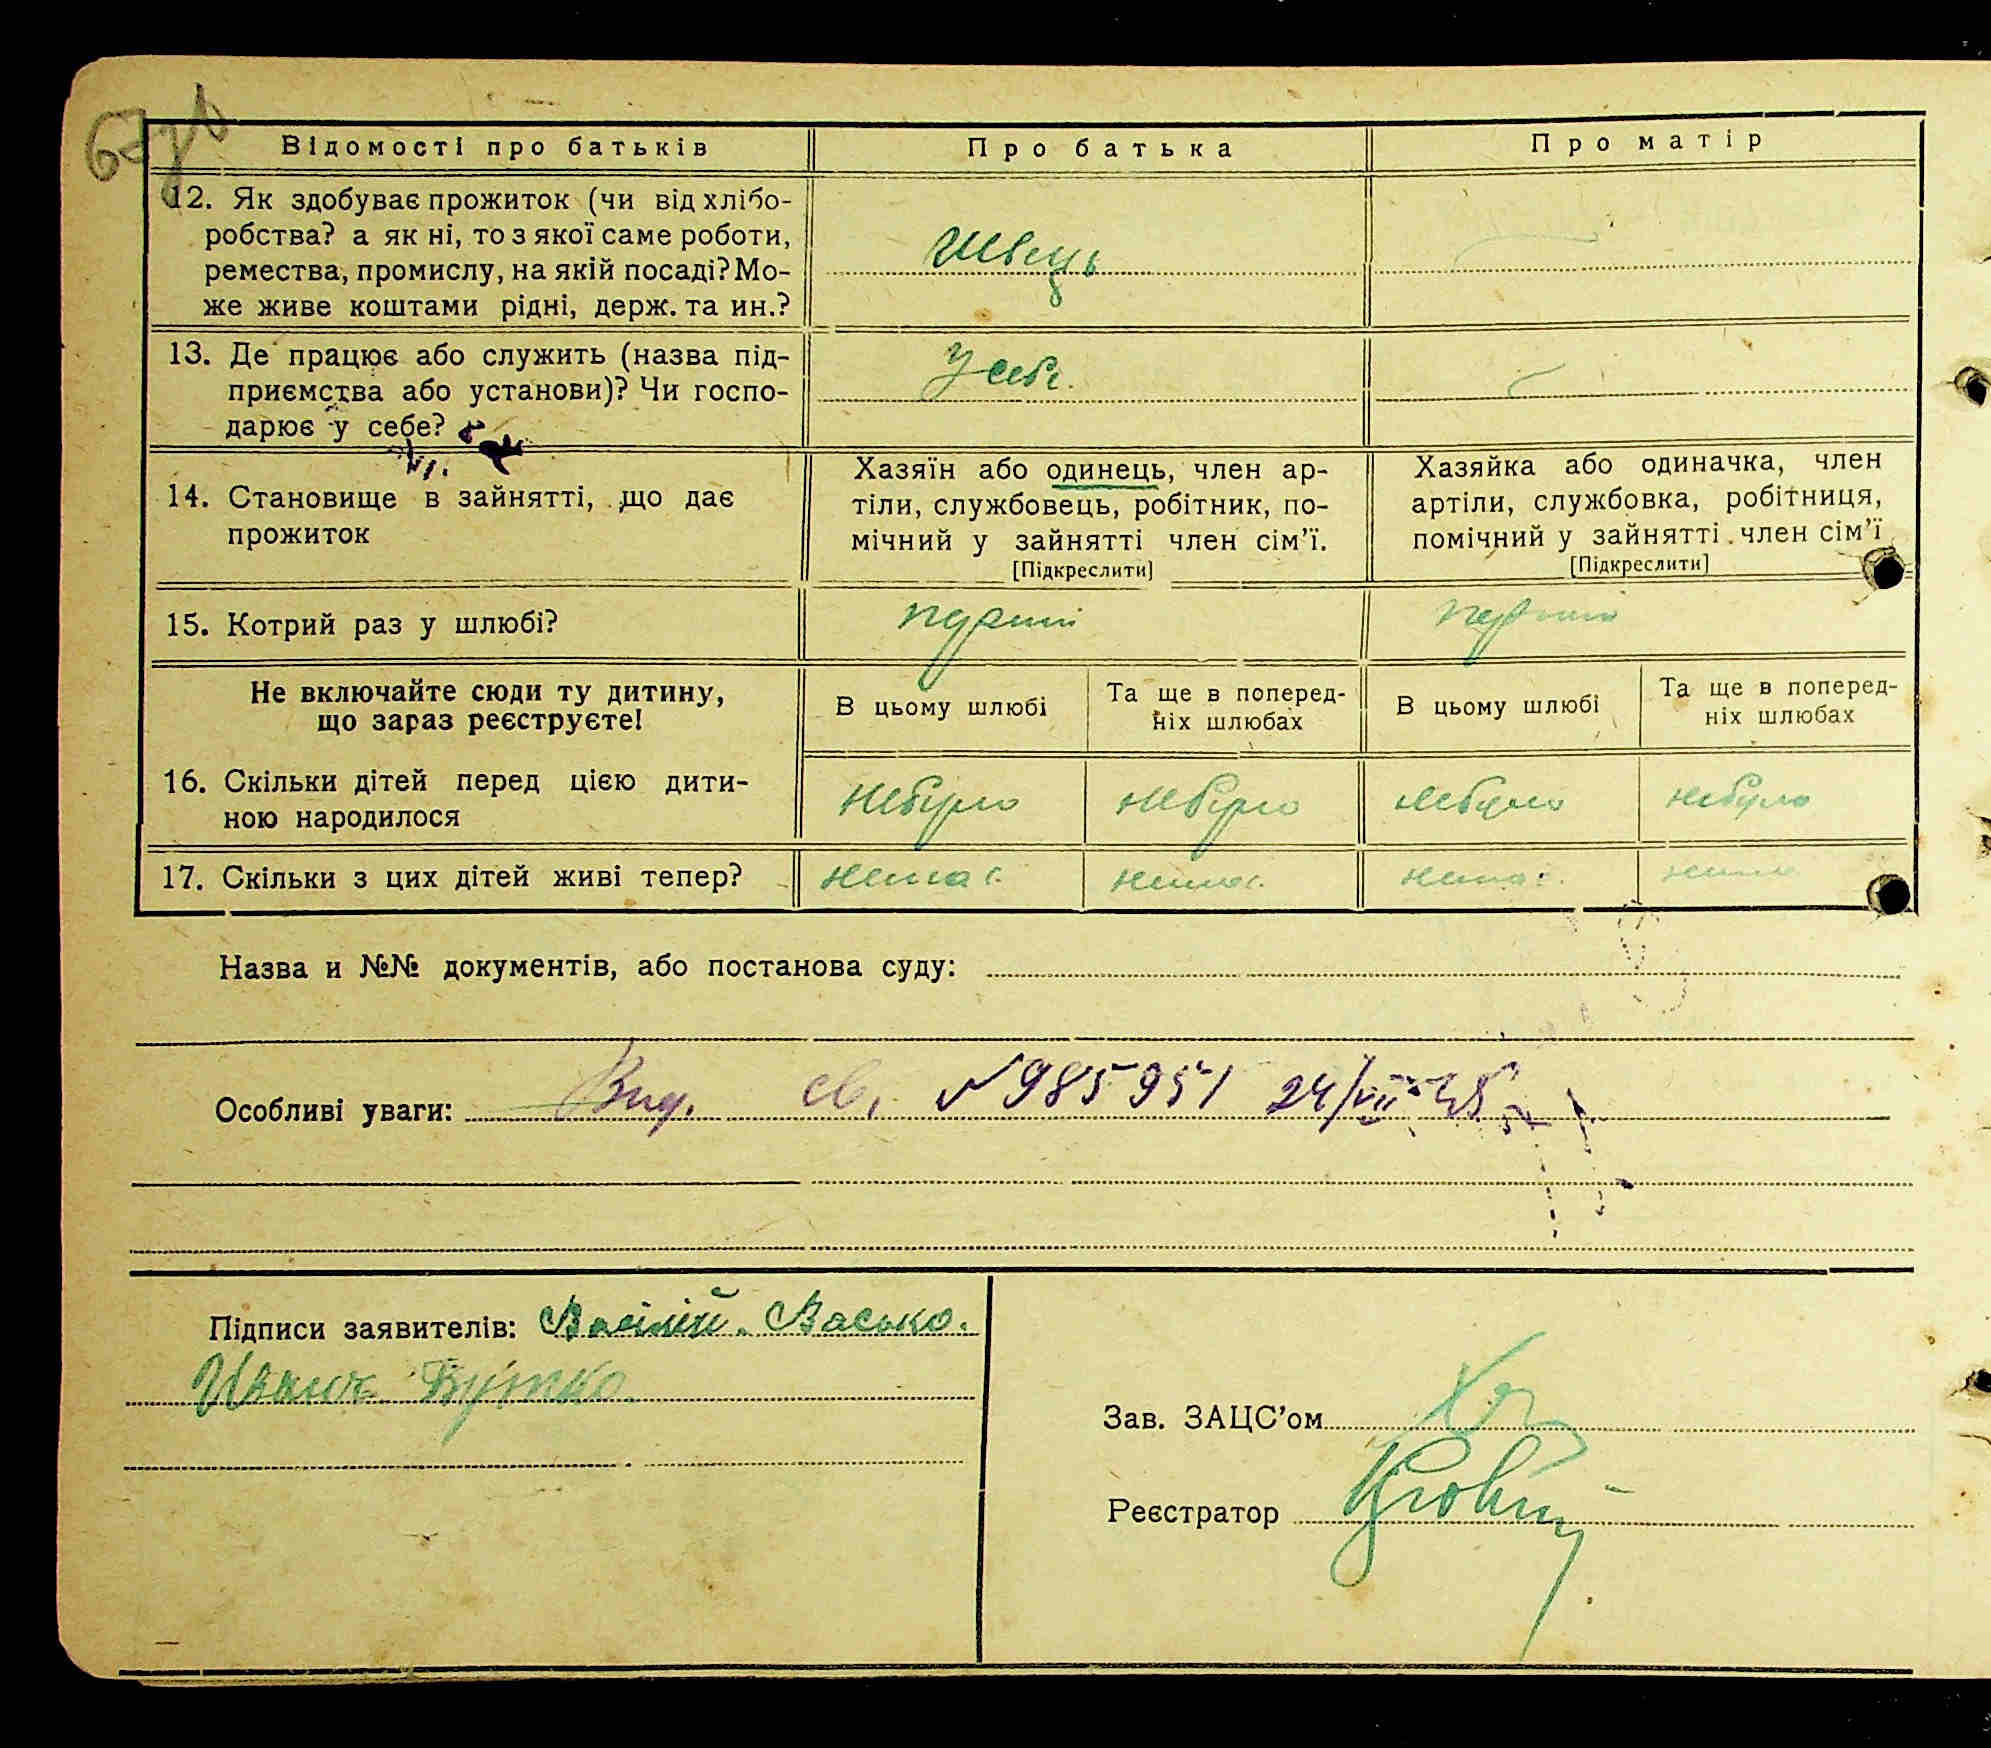 Відомості про батьків Про батька Про матір
12. Як здобуває прожиток (чи від хлібо-
робства? а як ні, то з якої саме роботи,
ремества, промислу, на якій посаді? Мо-
же живе коштами рідні, держ. та ин.?
Швець
13. Де працює або служить (назва під-
приємства або установи)? Чи госпо-
дарює у себе?
У себе.
14. Становище в зайнятті, що дає
прожиток
Хазяїн або одинець, член ар-
тіли, службовець, робітник, по-
мічний у зайнятті член сім’ї.
[Підкреслити]
Хазяйка або одиначка, член
артіли, службовка, робітниця,
помічний у зайнятті член сім’ї
[Підкреслити]
15. Котрий раз у шлюбі?
Не включайте сюди ту дитину,
що зараз реєструєте!
В цьому шлюбі
Та ще в поперед-
ніх шлюбах
В цьому шлюбі
Та ще в поперед-
ніх шлюбах
16. Скільки дітей перед цією дити-
ною народилося
небуло небуло небуло небуло
17. Скільки з цих дітей живі тепер?
Назва и №№ документів, або постанова суду:
Особливі уваги: Вид. св. №985951 24/VII-45
Підписи заявителів: Васілій. Васько.
Иванъ Бутко.
Зав. ЗАЦС’ом
Реєстратор